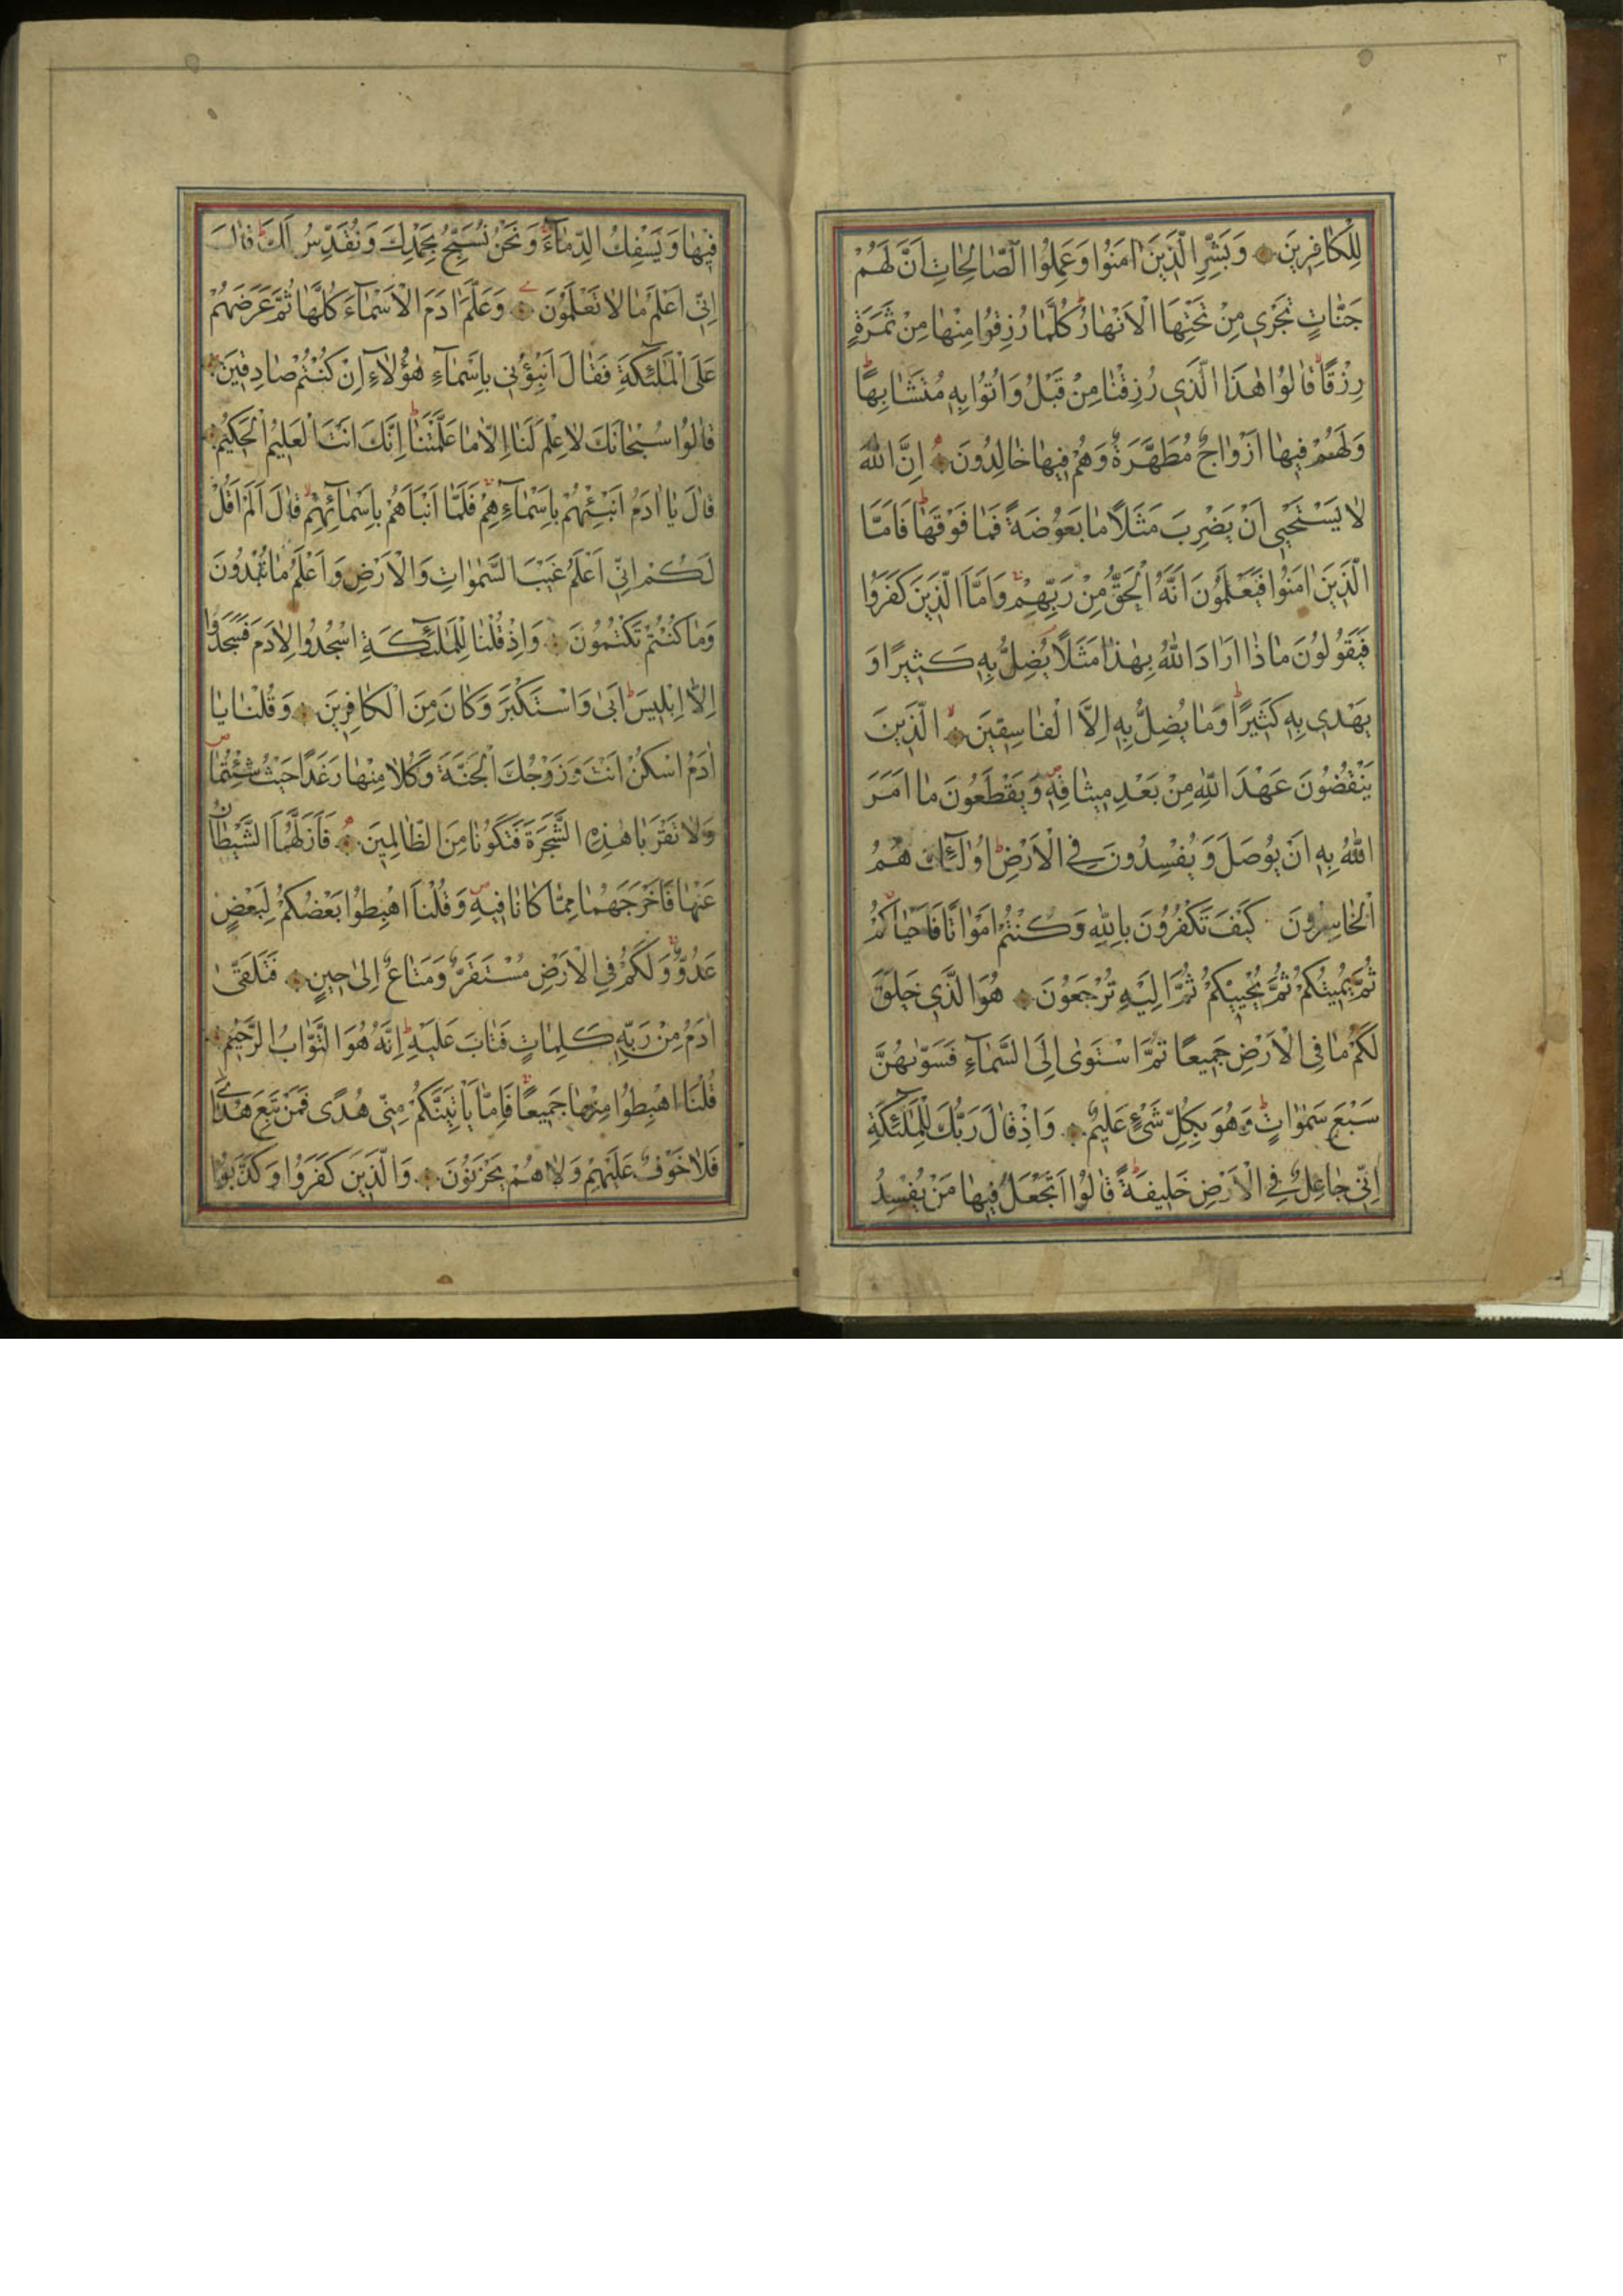 ٣
لِلْكَافِرِينَ وَبَشِّرِ الَّذِينَ اٰمَنُوا وَعَمِلُوا الصَّالِحَاتِ اَنَّ لَهُمْ
جَنَّاتٍ تَجْرِي مِنْ تَحْتِهَا الْاَنْهَارُ كُلَّمَا رُزِقُوا مِنْهَا مِنْ ثَمَرَةٍ
رِزْقًا قَالُوا هٰذَا الَّذِي رُزِقْنَا مِنْ قَبْلُ وَاُتُوا بِهِ مُتَشَابِهًا
وَلَهُمْ فِيهَا اَزْوَاجٌ مُطَهَّرَةٌ وَهُمْ فِيهَا خَالِدُونَ اِنَّ اللّٰهَ
لَا يَسْتَحْيِي اَنْ يَضْرِبَ مَثَلًا مَا بَعُوضَةً فَمَا فَوْقَهَا فَاَمَّا
الَّذِينَ اٰمَنُوا فَيَعْلَمُونَ اَنَّهُ الْحَقُّ مِنْ رَبِّهِمْ وَاَمَّا الَّذِينَ كَفَرُوا
فَيَقُولُونَ مَاذَا اَرَادَ اللّٰهُ بِهٰذَا مَثَلًا يُضِلُّ بِهِ كَثِيرًا وَ
يَهْدِي بِهِ كَثِيرًا وَمَا يُضِلُّ بِهِ اِلَّا الْفَاسِقِينَ الَّذِينَ
يَنْقُضُونَ عَهْدَ اللّٰهِ مِنْ بَعْدِ مِيثَاقِهِ وَيَقْطَعُونَ مَا اَمَرَ
اللّٰهُ بِهِ اَنْ يُوصَلَ وَيُفْسِدُونَ فِي الْاَرْضِ اُولٰٓئِكَ هُمُ
الْخَاسِرُونَ كَيْفَ تَكْفُرُونَ بِاللّٰهِ وَكُنْتُمْ اَمْوَاتًا فَاَحْيَاكُمْ
ثُمَّ يُمِيتُكُمْ ثُمَّ يُحْيِيكُمْ ثُمَّ اِلَيْهِ تُرْجَعُونَ هُوَ الَّذِي خَلَقَ
لَكُمْ مَا فِي الْاَرْضِ جَمِيعًا ثُمَّ اسْتَوٰى اِلَى السَّمَآءِ فَسَوّٰيهُنَّ
سَبْعَ سَمٰوَاتٍ وَهُوَ بِكُلِّ شَيْءٍ عَلِيمٌ وَاِذْ قَالَ رَبُّكَ لِلْمَلٰٓئِكَةِ
اِنِّي جَاعِلٌ فِي الْاَرْضِ خَلِيفَةً قَالُوا اَتَجْعَلُ فِيهَا مَنْ يُفْسِدُ
فِيهَا وَيَسْفِكُ الدِّمَآءَ وَنَحْنُ نُسَبِّحُ بِحَمْدِكَ وَنُقَدِّسُ لَكَ قَالَ
اِنِّي اَعْلَمُ مَا لَا تَعْلَمُونَ وَعَلَّمَ اٰدَمَ الْاَسْمَآءَ كُلَّهَا ثُمَّ عَرَضَهُمْ
عَلَى الْمَلٰٓئِكَةِ فَقَالَ اَنْبِؤُنِي بِاَسْمَآءِ هٰؤُلَآءِ اِنْ كُنْتُمْ صَادِقِينَ
قَالُوا سُبْحَانَكَ لَا عِلْمَ لَنَا اِلَّا مَا عَلَّمْتَنَا اِنَّكَ اَنْتَ الْعَلِيمُ الْحَكِيمُ
قَالَ يَا اٰدَمُ اَنْبِئْهُمْ بِاَسْمَآءِهِمْ فَلَمَّا اَنْبَاَهُمْ بِاَسْمَآئِهِمْ قَالَ اَلَمْ اَقُلْ
لَكُمْ اِنِّي اَعْلَمُ غَيْبَ السَّمٰوَاتِ وَالْاَرْضِ وَاَعْلَمُ مَا تُبْدُونَ
وَمَا كُنْتُمْ تَكْتُمُونَ وَاِذْ قُلْنَا لِلْمَلٰٓئِكَةِ اسْجُدُوا لِاٰدَمَ فَسَجَدُوا
اِلَّا اِبْلِيسَ اَبٰى وَاسْتَكْبَرَ وَكَانَ مِنَ الْكَافِرِينَ وَقُلْنَا يَا
اٰدَمُ اسْكُنْ اَنْتَ وَزَوْجُكَ الْجَنَّةَ وَكُلَا مِنْهَا رَغَدًا حَيْثُ شِئْتُمَا
وَلَا تَقْرَبَا هٰذِهِ الشَّجَرَةَ فَتَكُونَا مِنَ الظَّالِمِينَ فَاَزَلَّهُمَا الشَّيْطَانُ
عَنْهَا فَاَخْرَجَهُمَا مِمَّا كَانَا فِيهِ وَقُلْنَا اهْبِطُوا بَعْضُكُمْ لِبَعْضٍ
عَدُوٌّ وَلَكُمْ فِي الْاَرْضِ مُسْتَقَرٌّ وَمَتَاعٌ اِلٰى حِينٍ فَتَلَقّٰى
اٰدَمُ مِنْ رَبِّهِ كَلِمَاتٍ فَتَابَ عَلَيْهِ اِنَّهُ هُوَ التَّوَّابُ الرَّحِيمُ
قُلْنَا اهْبِطُوا مِنْهَا جَمِيعًا فَاِمَّا يَاْتِيَنَّكُمْ مِنِّي هُدًى فَمَنْ تَبِعَ هُدَايَ
فَلَا خَوْفٌ عَلَيْهِمْ وَلَا هُمْ يَحْزَنُونَ وَالَّذِينَ كَفَرُوا وَكَذَّبُوا